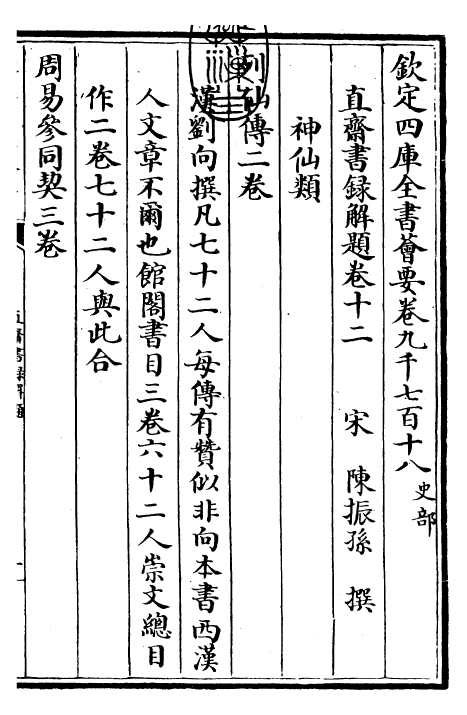 欽定四庫全書薈要卷九千七百十八 史部
直齋書録解題卷十二 宋 陳振孫 撰
神仙類
列仙傳二卷
漢劉向撰凡七十二人每傳有贊似非向本書西漢
人文章不爾也館閣書目三卷六十二人崇文總目
作二卷七十二人與此合
周易參同契三卷